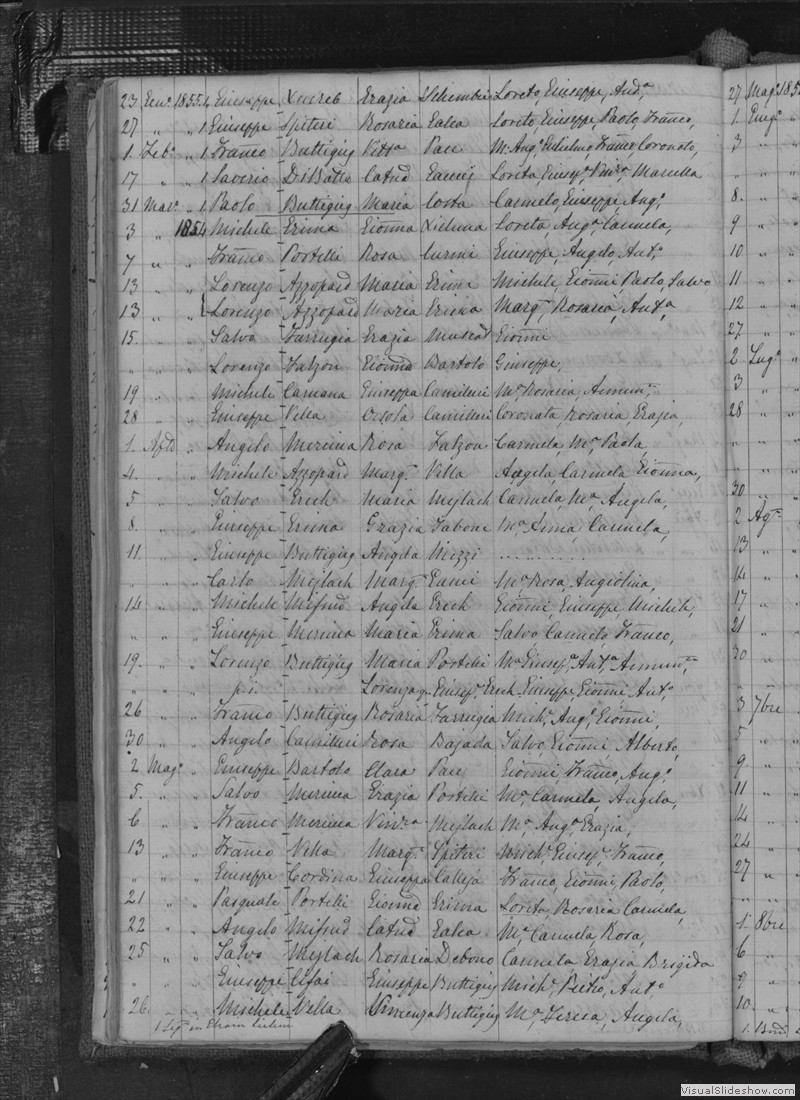 23 Gen.º 1855 Giuseppe Xuereb Grazia Schembri Loreto, Giuseppe, And.ª
27 „ „ 1 Giuseppe Spiteri Rosaria Galea Loreto, Giuseppe, Paolo, Franco,
1. Feb.º „ 1 Franco Buttigieg Vitt.ª Pace M.ª Ang.ª Gulielmo, Franco, Coronato,
17 „ „ 1 Saverio DiBatta Catnd Loreta, Giusep.ª Vinc.ª Marietta
31 Mar.º „ 1 Paolo Buttigieg Maria Costa Carmelo, Giuseppe, Ang.º
3 „ 1854 Michele Grima Gionna Xicluna Loreta, Ang.ª Carmela,
7 „ „ Franco Portelli Rosa Curmi Giuseppe, Angelo, Ant.º
13 „ „ Lorenzo Azzopard Maria Grima Michele, Gionni, Paolo, Salvo
13 „ „ Lorenzo Azzopard Maria Grima Marg.ª Rosaria, Ant.ª
15. „ „ Salvo Farrugia Grazia Muscat Gionni
„ „ „ Lorenzo Falzon Gionna Bartolo Giuseppe,
19 „ „ Michele Camana Giuseppa Camilleri M.ª Rosaria, Assunt.ª
28 „ „ Giuseppe Vella Orsola Camilleri Coronata, Rosaria, Grazia,
1. „ Angelo Mercieca Rosa Falzon Carmela, M.ª Paola,
4. „ „ Michele Azzopard Marg.ª Vella Angela, Carmela, Gionna,
5 „ „ Salvo Grech Maria Mejlach Carmela, M.ª Angela,
8. „ „ Giuseppe Grima Grazia Tabone M.ª Anna, Carmela,
11. „ „ Giuseppe Buttigieg Angela Mizzi ..........
„ „ „ Carlo Mejlach Marg.ª Gauci M.ª Rosa, Angiolina,
14 „ „ Michele Mifsud Angela Grech Gionni, Giuseppe, Michele,
„ „ „ Giuseppe Mercieca Maria Grima Salvo, Carmelo, Franco,
19. „ „ Lorenzo Buttigieg Maria Portelli M.ª Giusep.ª Ant.ª Assunt.ª
„ „ „ Lorenza Giusep.ª Grech Giuseppe, Gionni, Ant.º
26 „ „ Franco Buttigieg Rosaria Farrugia Mich.ª Ang.ª Gionni,
30 „ „ Angelo Camilleri Rosa Bajada Salvo, Gionni, Alberto,
2 Mag.º „ Giuseppe Bartolo Clara Pace Gionni, Franco, Ang.º
5. „ „ Salvo Mercieca Grazia Portelli M.ª Carmela, Angela,
6 „ „ Franco Mercieca Vinc.ª Mejlach M.ª Ang.ª Grazia,
13 „ „ Franco Vella Marg.ª Spiteri Mich.ª Giusep.ª Franco,
„ „ „ Giuseppe Cordina Giuseppa Calleja Franco, Gionni, Paolo,
21 „ „ Pasquale Portelli Gionna Grima Loreta, Rosaria, Carmela,
22 „ „ Angelo Mifsud Catnd Galea M.ª Carmela, Rosa,
25 „ „ Salvo Mejlach Rosaria Debono Carmela, Grazia, Brigida
„ „ „ Giuseppe Giuseppe Buttigieg Mich.ª Pietro, Ant.º
26. „ „ Michele Vella Vincenza Buttigieg M.ª Teresa, Angela,
27 Mag.º 185
1. Giug.º „
3 „ „
„ „ „
8. „ „
9 „ „
10 „ „
11 „ „
12 „ „
27 „ „
2 Lug.º „
3 „ „
28 „ „
„ „ „
„ „ „
30 „ „
2 Ag.º „
13 „ „
14 „ „
17 „ „
21 „ „
30 „ „
3 7bre
5 „ „
9 „ „
11 „ „
14 „ „
24 „ „
27 „ „
1. 8bre
6 „ „
9 „ „
10. „ „
VisualSlideshow.com